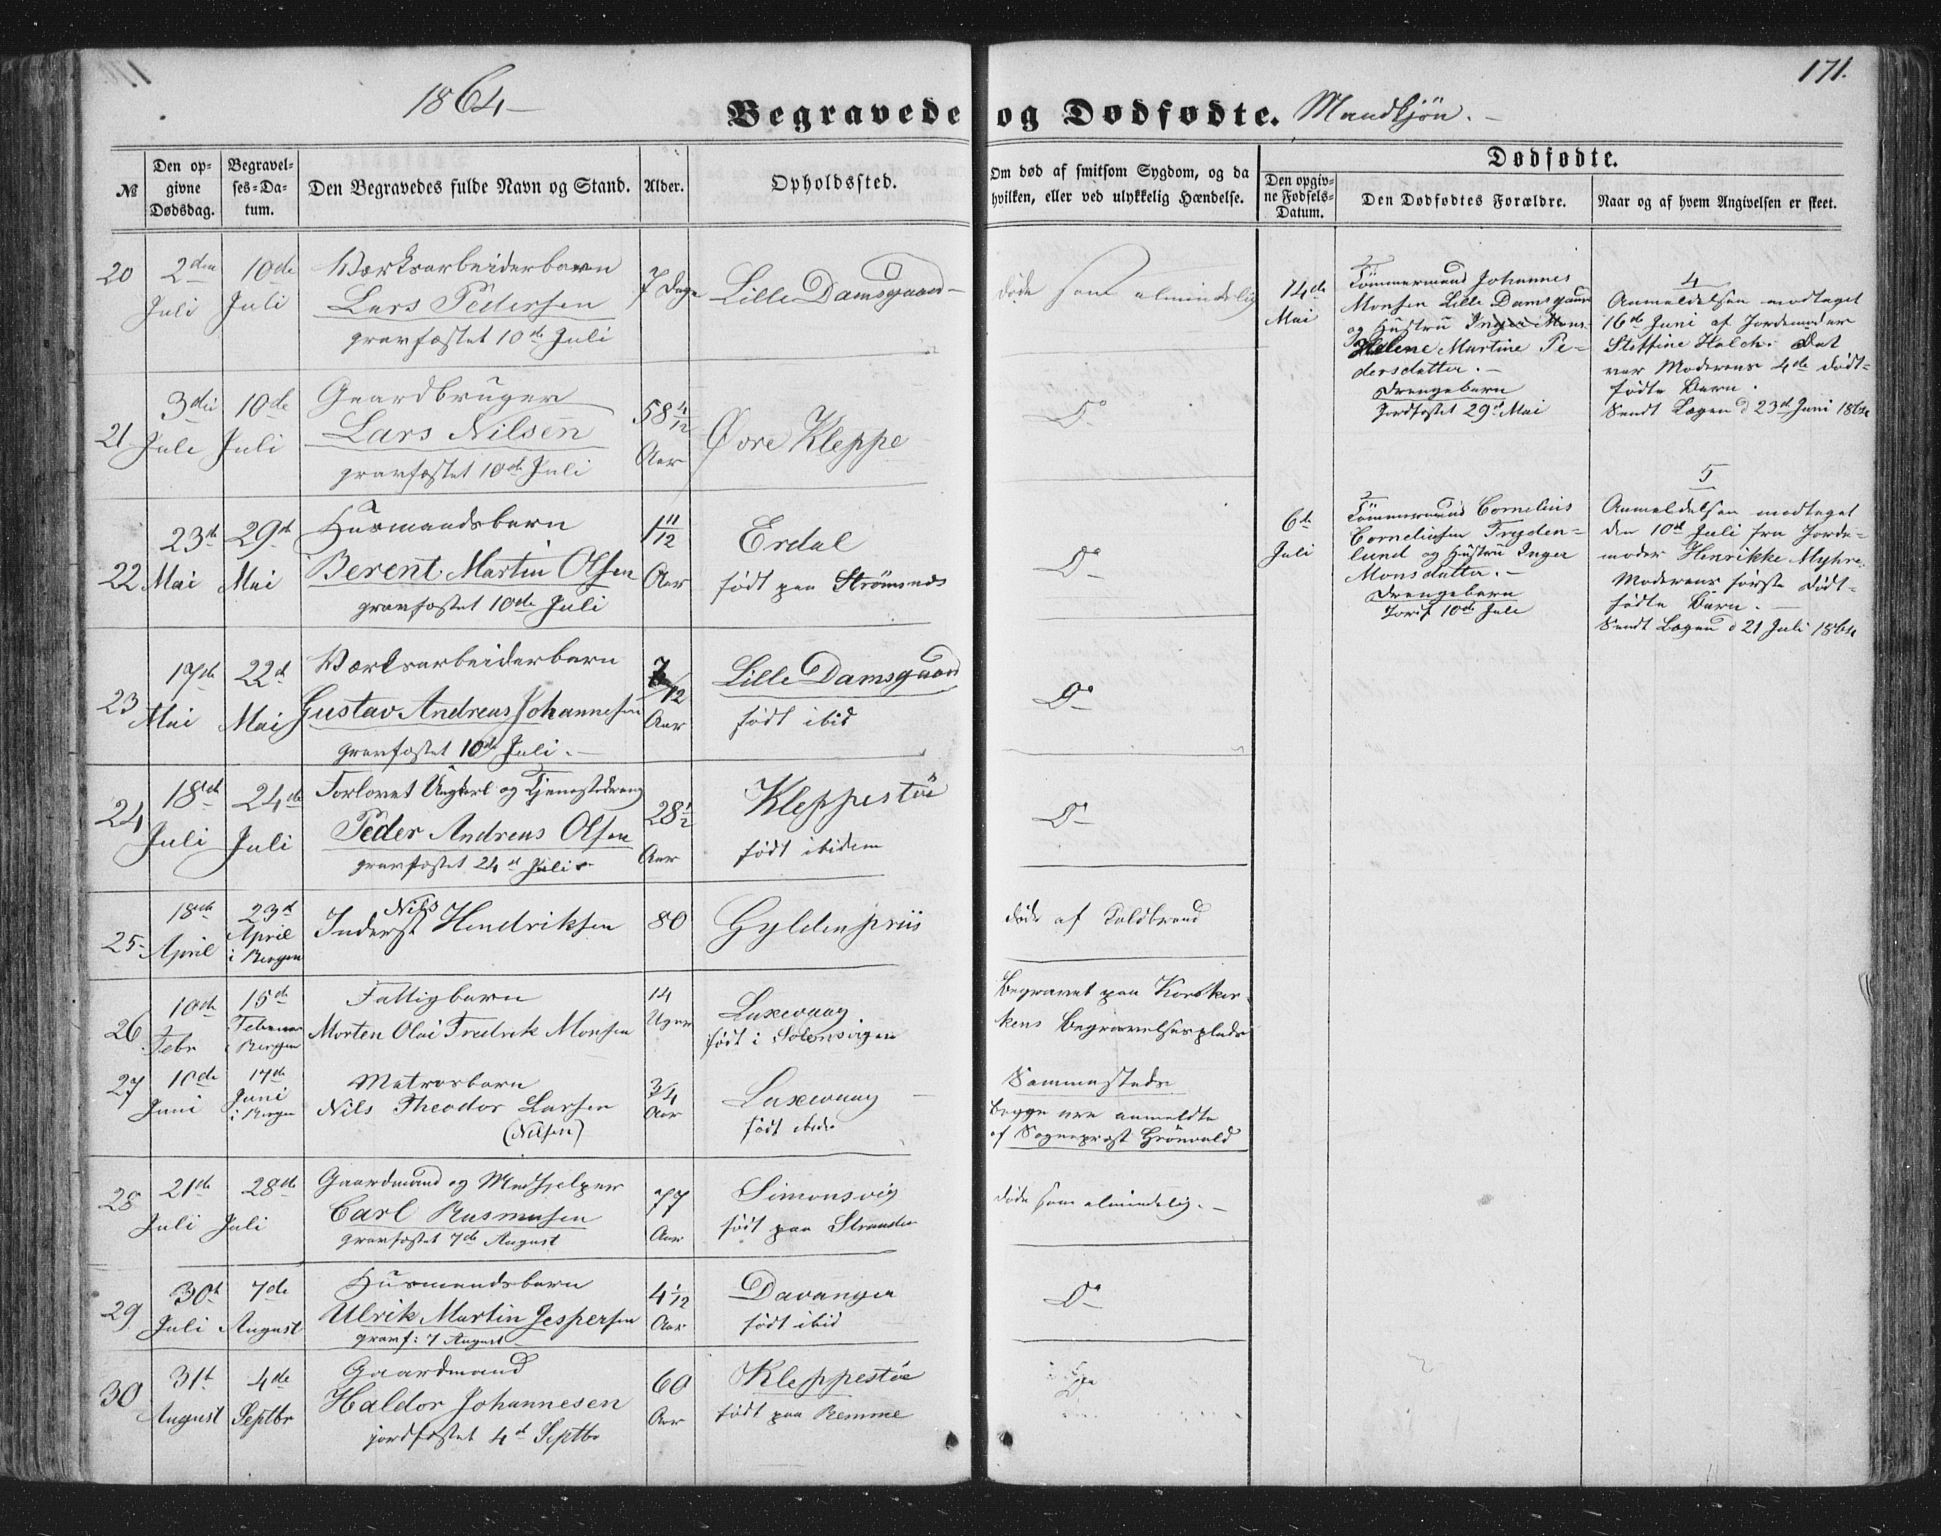 171.
1864
Begravede og Dødfødte. Mandkjøn.
Dødfødte.
№
Den opgivne Dødsdag.
Begravelses-Datum.
Den Begravedes fulde Navn og Stand.
Alder.
Opholdssted.
Om død af smitsom Sygdom, og da hvilken, eller ved ulykkelig Hændelse.
Den opgivne Fødsels-Datum.
Den Dødfødtes Forældre.
Naar og af hvem Angivelsen er skeet.
20 2den Juli 10de Juli Værksarbeiderbarn 7 Dage Lille Damsgaard døde som almindelig
Lars Pedersen
gravfæstet 10de Juli
21 3die Juli 10de Juli Gaardbruger 58 4/12 Aar Øvre Kleppe Do
Lars Nilsen
gravfæstet 10de Juli
22 23d Mai 29d Mai Huusmandsbarn 1 11/12 Aar Erdal Do
Berent Martin Olsen født paa Strømsnæs
gravfæstet 10de Juli
23 17de Mai 22d Mai Værksarbeiderbarn 7/12 Aar Lille Damsgaard Do
Gustav Andreas Johannesen født ibid
gravfæstet 10de Juli.
24 18de Juli 24de Juli Forlovet Ungkarl og Tjenestedreng 28 1/2 Aar Kleppestöe Do
Peder Andreas Olsen født ibidem
gravfæstet 24d Juli
25 18de April 23d April i Bergen Inderst Nils Hendriksen 80 Gyldenpriis døde af Koldbrand
26 10de Febr 15de Februar Bergen Fattigbarn 14 Uger Laxevaag Begravet paa Korskirkens Begravelsesplads
Morten Olai Fredrik Monsen født i Solensvigen
27 10de Juni 17de Juni i Bergen Matrosbarn 3/4 Aar Laxevaag Sammesteds
Nils Theodor Larsen født ibid
(Nilsen)
Begge ere anmeldte
af Sogneprest Grönvold
28 21de Juli 28de Juli Gaardmand og Medhjelper 77 Aar Simonsvig døde som almindelig.
Carl Rasmusen født paa Stranden
gravfæstet 7de August
29 30t Juli 7de August Huusmandsbarn 4 1/12 Aar Davanger Do
Ulrik Martin Jespersen født ibid
gravf: 7 August
30 31t August 4de Septbr Gaardmand 60 Aar Kleppestöe
Haldor Johannesen født paa Remme
jordfæstet 4d Septbr
14de Mai
Tömmermand Johannes
Monsen Lille Damsgaard
og Hustru Inger Mons
Helene Martine Pe-
dersdatter.
Drengebarn
Jordfæstet 29d Mai
4
Anmeldelsen modtaget
16de Juni af Jordemoder
Steffine Holck. Det
var Moderens 4de dødt-
fødte Barn.
Sendt Lægen d 23d Juni 1864
6te Juli
Tömmermand Cornelius
Corneliusen Fryden-
lund og Hustru Inger
Monsdatter.
Drengebarn
Jordf 10de Juli
5
Anmeldelsen modtaget
den 10de Juli fra Jorde-
moder Henrikke Myhre.
Moderens første dødt-
fødte Barn.
Sendt Lægen d 21 Juli 1864